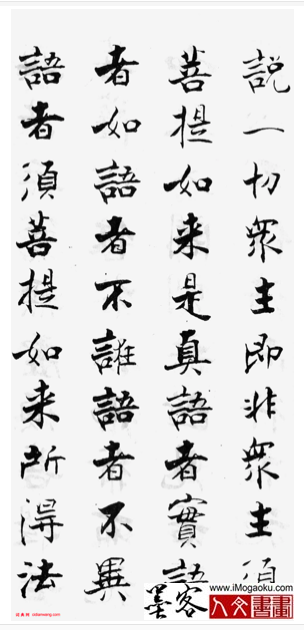 說一切眾生即非眾生須
菩提如来是真語者實語
者如語者不誑語者不異
語者須菩提如来所得法
www.iMogaoku.com
墨客
人文書畫
cidianwang.com